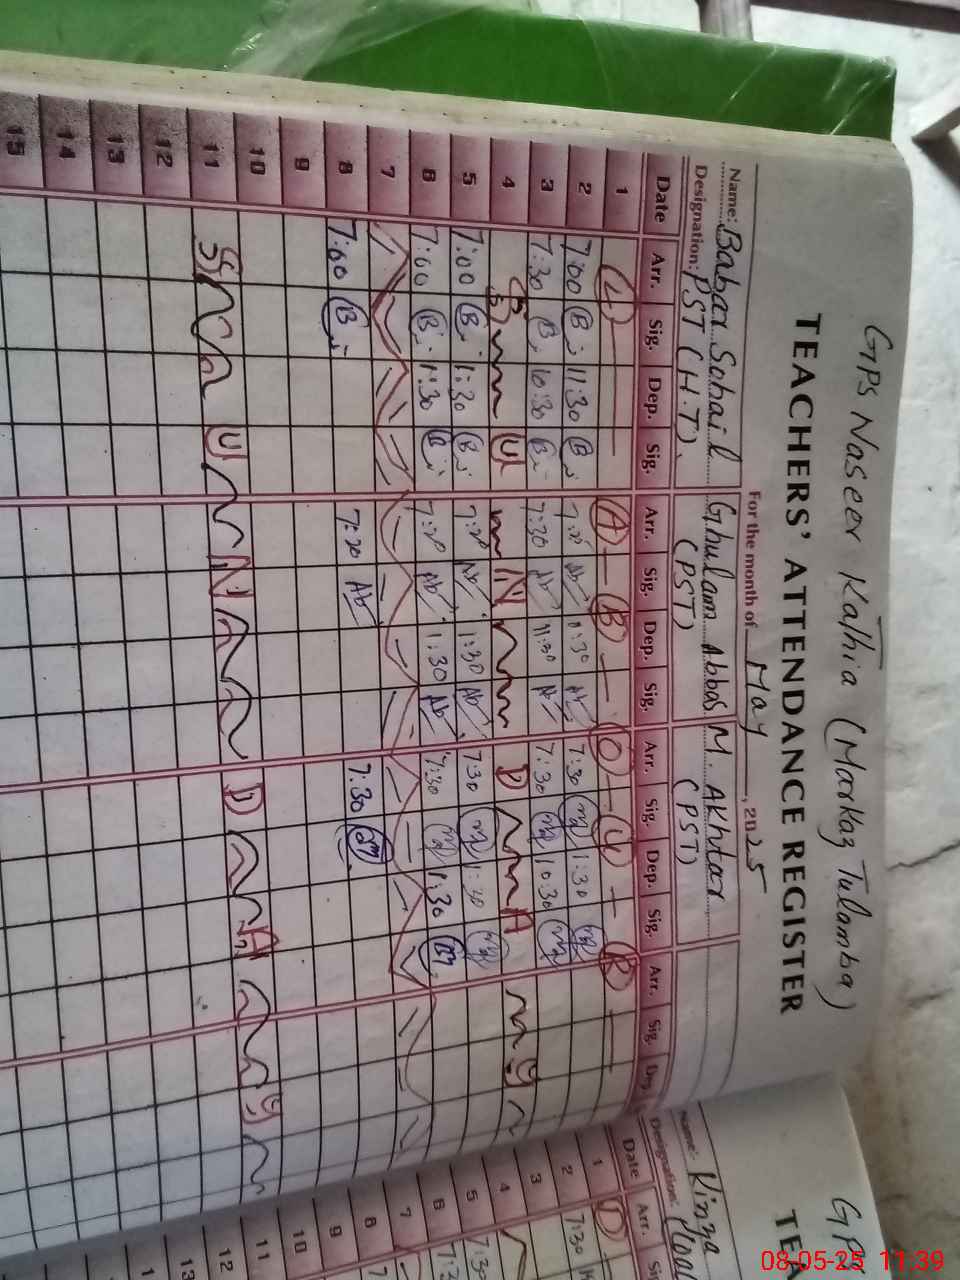 GPS Naseer Kathia (Markaz Tulamba)
TEACHERS' ATTENDANCE REGISTER
For the month of May, 2025
Name: Babar Sohail Ghulam Abbas M. Akhtar
Designation: PST (H.T) (PST) (PST)
Date Arr. Sig. Dep. Sig. Arr. Sig. Dep. Sig. Arr. Sig. Dep. Sig. Arr. Sig. Dep.
1 L A B O U R
2 7:00 B 11:30 B 11:30 7:30 1:30
3 7:30 B 10:30 B 7:30 11:30 7:30 10:30
4 S U N D A Y
5 7:00 B 1:30 B 7:20 Ab 1:30 Ab 7:30 1:30
6 7:00 B 1:30 B 7:20 Ab 1:30 Ab 7:30 1:30
7
8 7:00 B 7:20 Ab 7:30
9
10
11 S U N D A Y
12
13
14
15
GPS
TEA
Name: Kinza
Designation:
Date Arr.
1
2 7:30
3
4
5
6
7
8
9
10
11
12
13
08-05-25 11:39